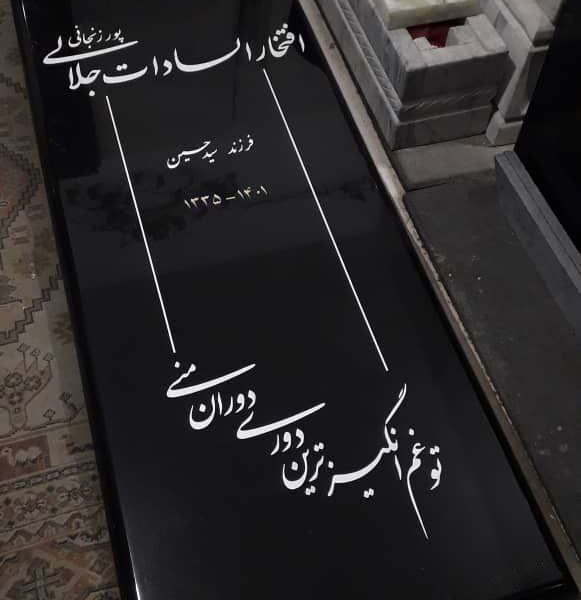 افتخار السادات جلالی
پور زنجانی
فرزند سید حسین
۱۳۳۵-۱۴۰۱
تو غم انگیز ترین دوری دوران منی